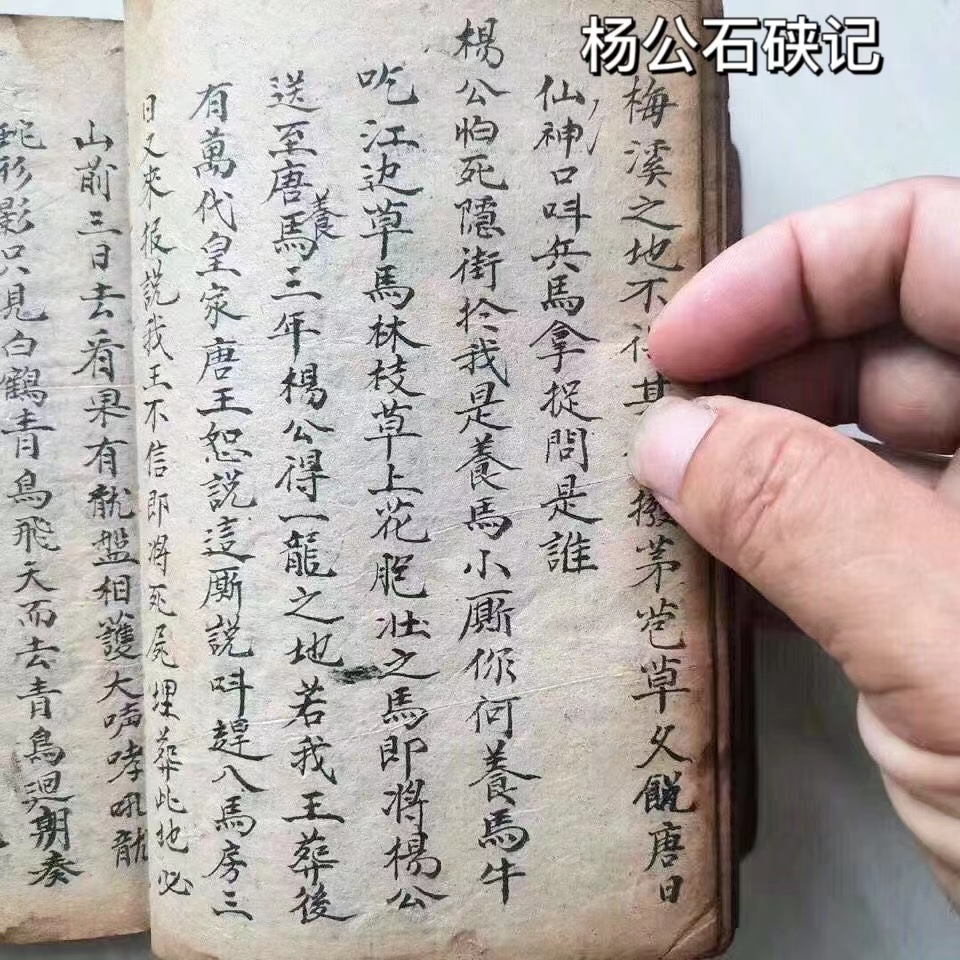 杨公石硖记
梅溪之地不
其
撥茅芭草父餽唐日
仙神口呌兵馬拿捉問是誰
楊公怕死隱街扵我是養馬小厮你何養馬牛
吃江边草馬林枝草上花肥壮之馬即将楊公
送至唐馬養三年楊公得一龍之地若我王葬後
有萬代皇家唐王恕説這厮説呌趕八馬房三
日又来报説我王不信即将死屍埋葬此地必
山前三日去看果有龍盤相護大声哮吼龍
蛇形影只見白鶴青鳥飛天而去青鳥迴朝奏